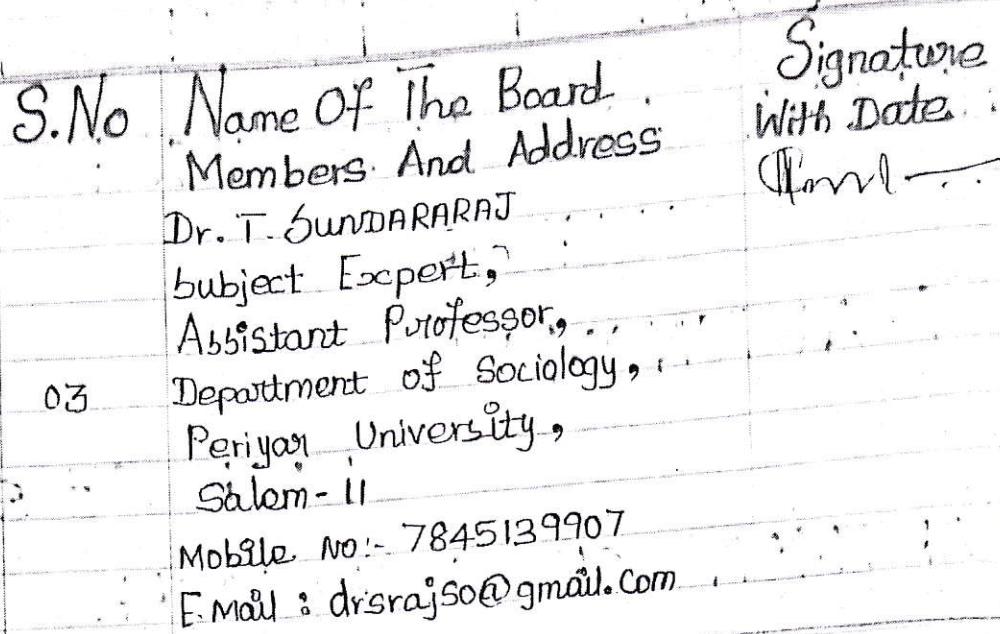 S.No Name Of The Board Signature
Members And Address With Date
Dr. T. SUNDARARAJ
Subject Expert,
Assistant Professor,
03 Department of Sociology,
Periyar University,
Salem-11
Mobile No:- 7845139907
E.Mail : drsrajso@gmail.com